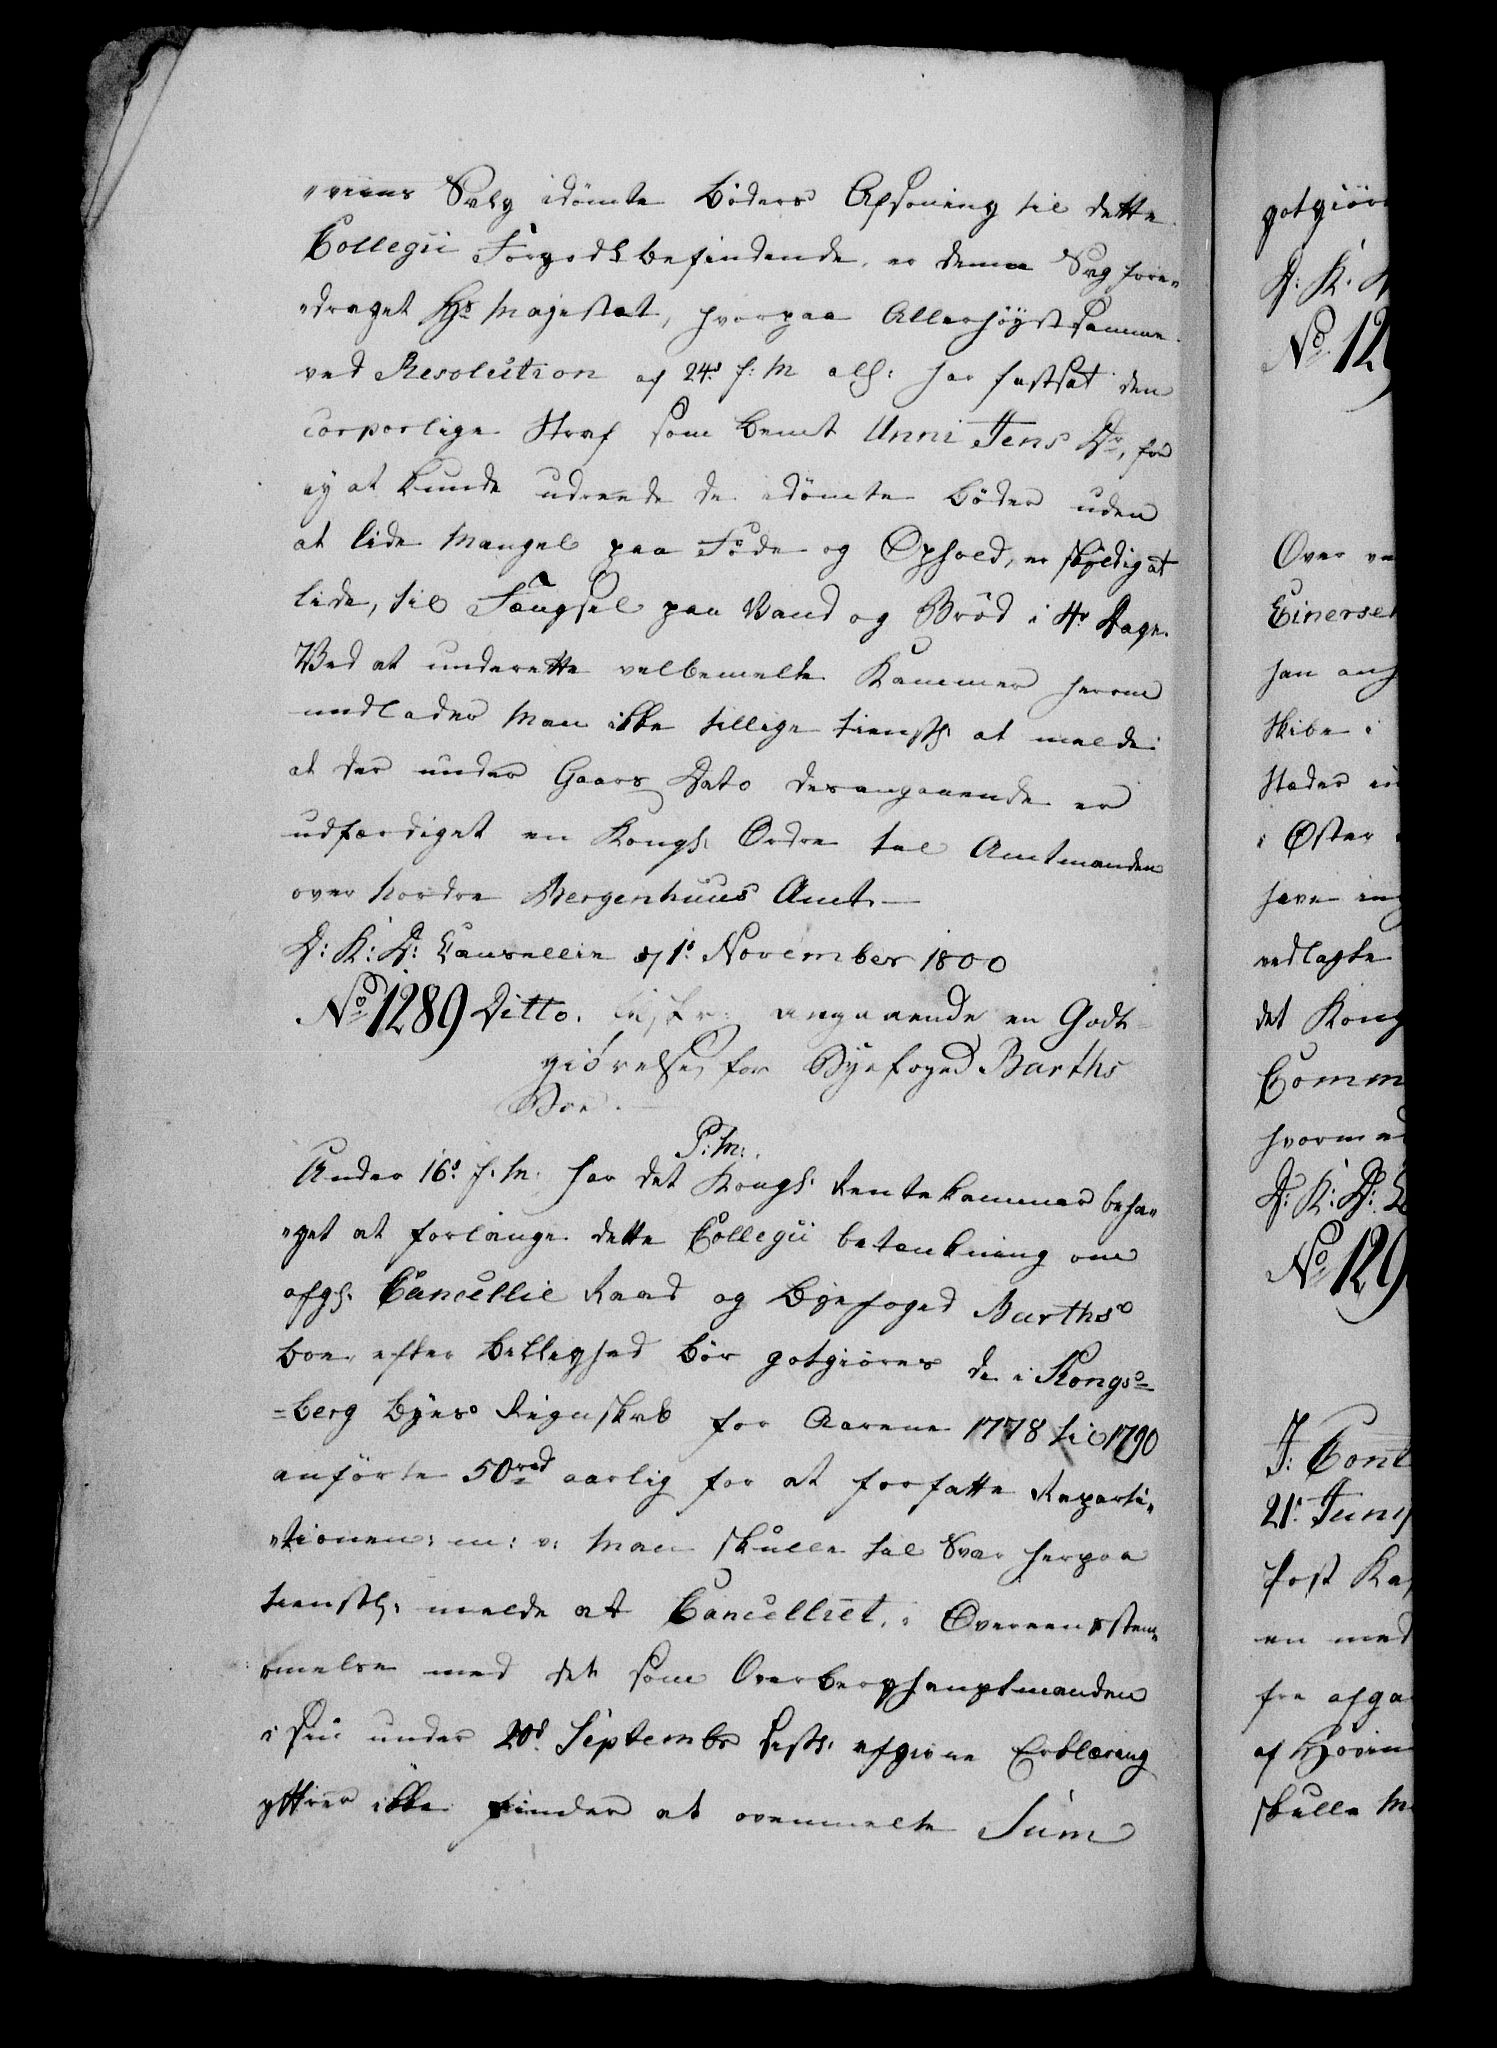 Sag idømte Bøders Afsoning til dette
Collegii Forgodtbefindende, er denne Sag fore„
„draget Hs Majestæt, hvorpaa Allerhøystsamme
ved Resolution af 24d f: M allh: har fastsat den
corporlige Straf som bemt Unni Jens Dr, for
ey at kunde udreede de idømte Bøder uden
at lide Mangel paa Føde og Ophold, er skyldig at
lide, til Fængsel paa Vand og Brød i 4r Dage.
Ved at underette velbemelte Kammer herre
undlader Man ikke tillige tienstl: at melde:
at der under Gaars Dato desangaaende er
udfærdiget en Kongl: Ordre til Amtmanden
over Nordre Bergenhuus Amt.—
D: K: D: Cancellie d 1: November 1800
No 1289 Ditto. angaaende en Godt-
giørelse for Byefoged Barths
Boe.—
P: M:
Under 16d f: M: har det Kongl: Rentekammer beha„
„get at forlange dette Collegii betænkning om
afg: Cancellie Raad og Byefoged Barths
boe, efter Billighed bør gotgiøres de i Kongs=
=berg Byes Regnskab for Aarene 1778 til 1790
anførte 50rd aarlig for at forfatte Reparti„
„tionen: m: v: Man skulle til Svar herpaa
tienstl: melde at Cancelliet, i Overeensstem„
„melse med det som Overberghauptmanden
i sin under 20d Septembr sidstl: afgivne Erklæring
yttrer ikke finder at ovenmelte Sum
gotgiør
D: K:
No 12
Over
Einerse
han
Skibe i
Stæder
i Øster
have
vedlagte
det Kong
Comm
hvormed
D: K: D:
No 129
J: Cont
21: Juny
Post
en med
fra afga
af Hovin
skulle M